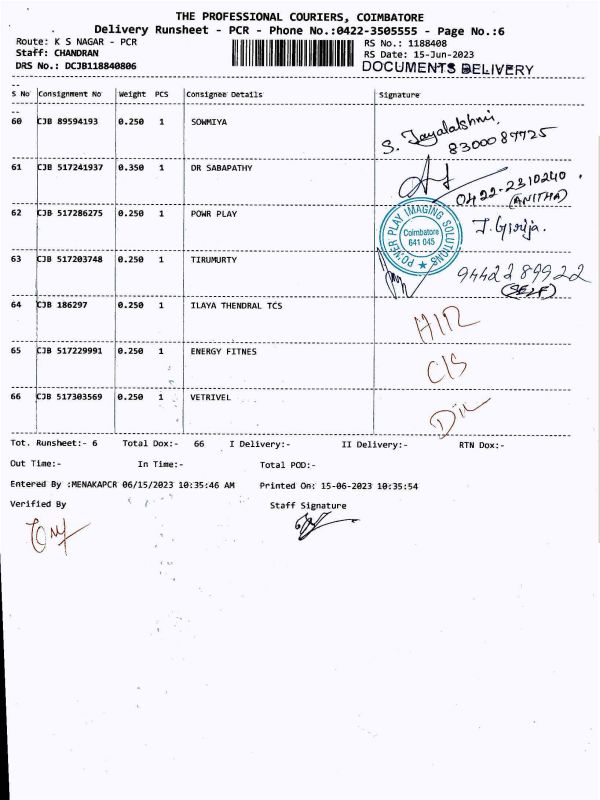 THE PROFESSIONAL COURIERS, COIMBATORE
Delivery Runsheet - PCR - Phone No.:0422-3505555 - Page No.:6
Route: K S NAGAR - PCR RS No.: 1188408
Staff: CHANDRAN RS Date: 15-Jun-2023
DRS No.: DCJB118840806 DOCUMENTS DELIVERY
S No Consignment No Weight PCS Consignee Details Signature
60 CJB 89594193 0.250 1 SOWMIYA S. Jayalakshmi,
8300087725
61 CJB 517241937 0.350 1 DR SABAPATHY
0422-2310240.
(ANITHA)
62 CJB 517286275 0.250 1 POWR PLAY J. Girija.
POWER PLAY IMAGING SOLUTIONS
Coimbatore
641 045
63 CJB 517203748 0.250 1 TIRUMURTY 9442289922
(SELF)
64 CJB 186297 0.250 1 ILAYA THENDRAL TCS
65 CJB 517229991 0.250 1 ENERGY FITNES C/S
66 CJB 517303569 0.250 1 VETRIVEL
Tot. Runsheet:- 6 Total Dox:- 66 I Delivery:- II Delivery:- RTN Dox:-
Out Time:- In Time:- Total POD:-
Entered By :MENAKAPCR 06/15/2023 10:35:46 AM Printed On: 15-06-2023 10:35:54
Verified By Staff Signature